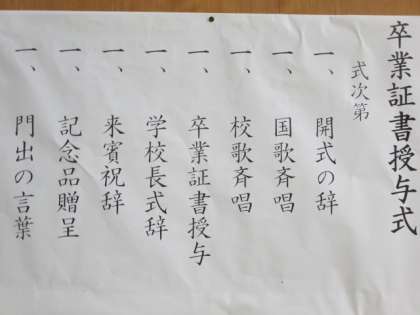 卒業証書授与式
式次第
一、開式の辞
一、国歌斉唱
一、校歌斉唱
一、卒業証書授与
一、学校長式辞
一、来賓祝辞
一、記念品贈呈
一、門出の言葉